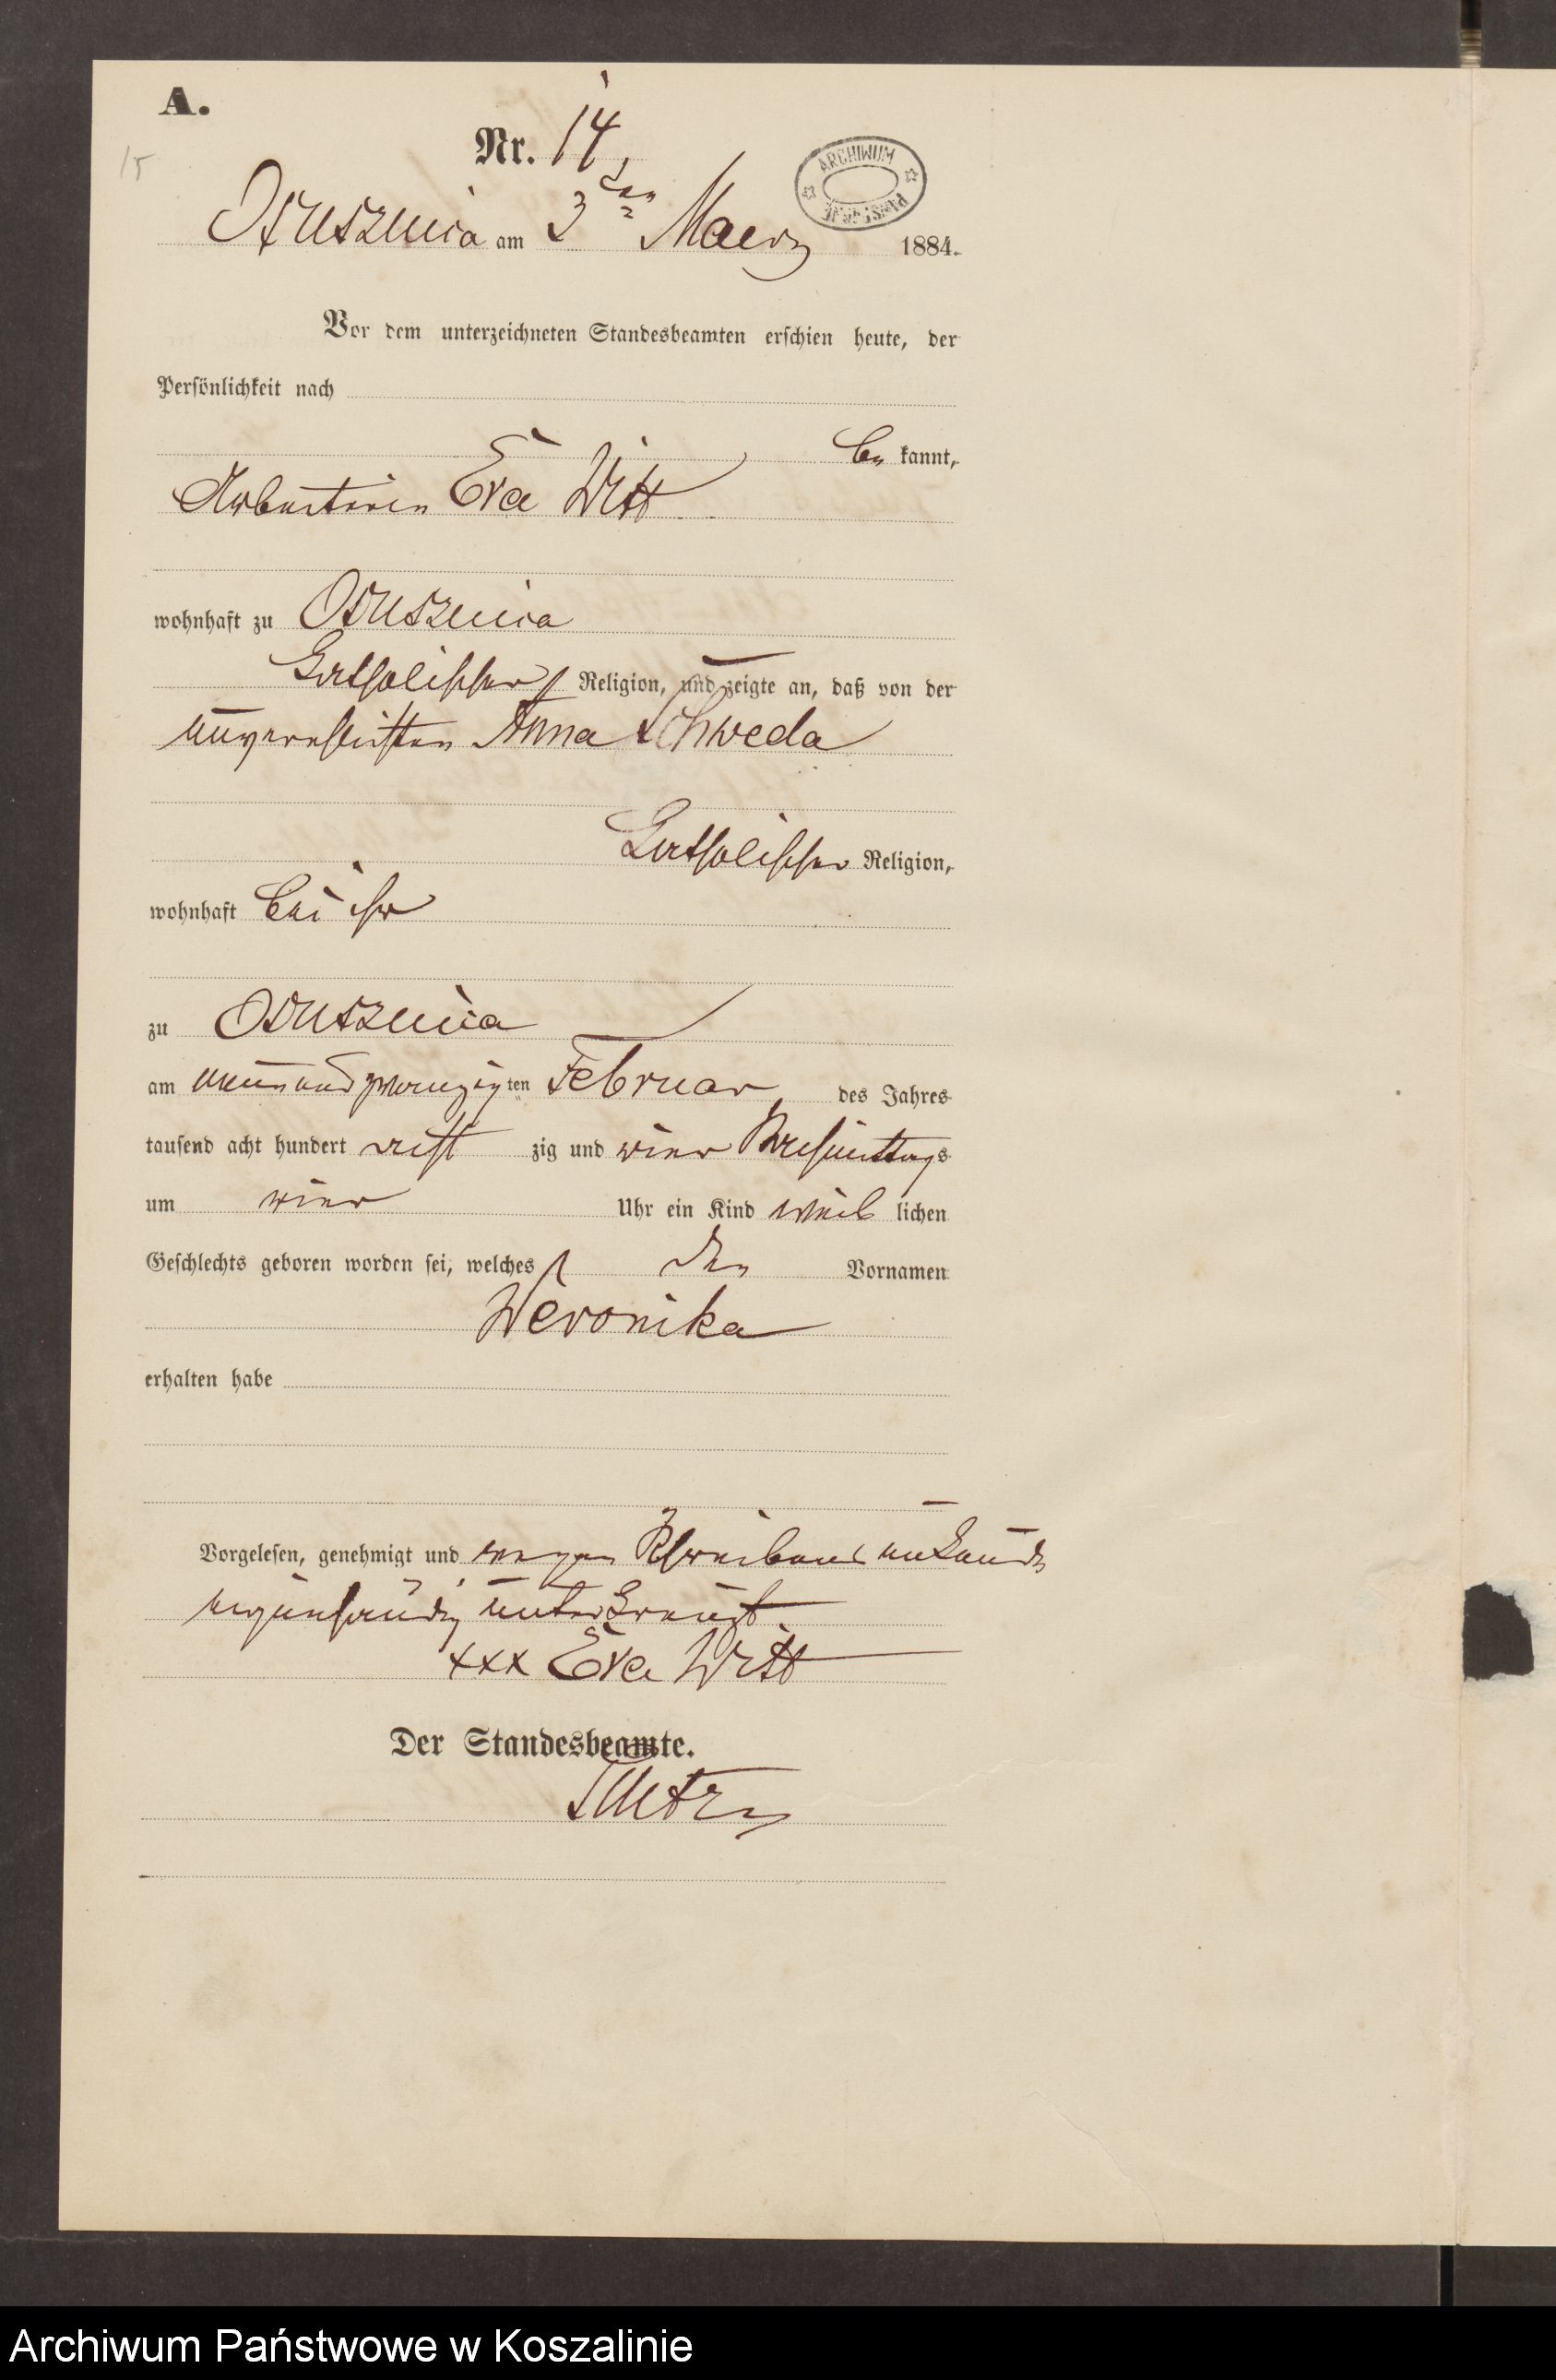 A.
15
Nr. 14.
ARCHIWUM PAŃSTWOWE
Ossusznica am 3ten Maerz 1884.
Vor dem unterzeichneten Standesbeamten erschien heute, der
Persönlichkeit nach
be kannt,
Arbeiterin Eva Witt
wohnhaft zu Ossusznica
katholischer Religion, und zeigte an, daß von der
unverehelichten Anna Schweda
katholischer Religion,
wohnhaft bei ihr
zu Ossusznica
am neun und zwanzig ten Februar des Jahres
tausend acht hundert acht zig und vier Nachmittags
um vier Uhr ein Kind weib lichen
Geschlechts geboren worden sei, welches den Vornamen
Weronika
erhalten habe
Vorgelesen, genehmigt und wegen Schreibens unkunde
eigenhändig unterkreuzt
xxx Eva Witt
Der Standesbeamte.
Archiwum Państwowe w Koszalinie